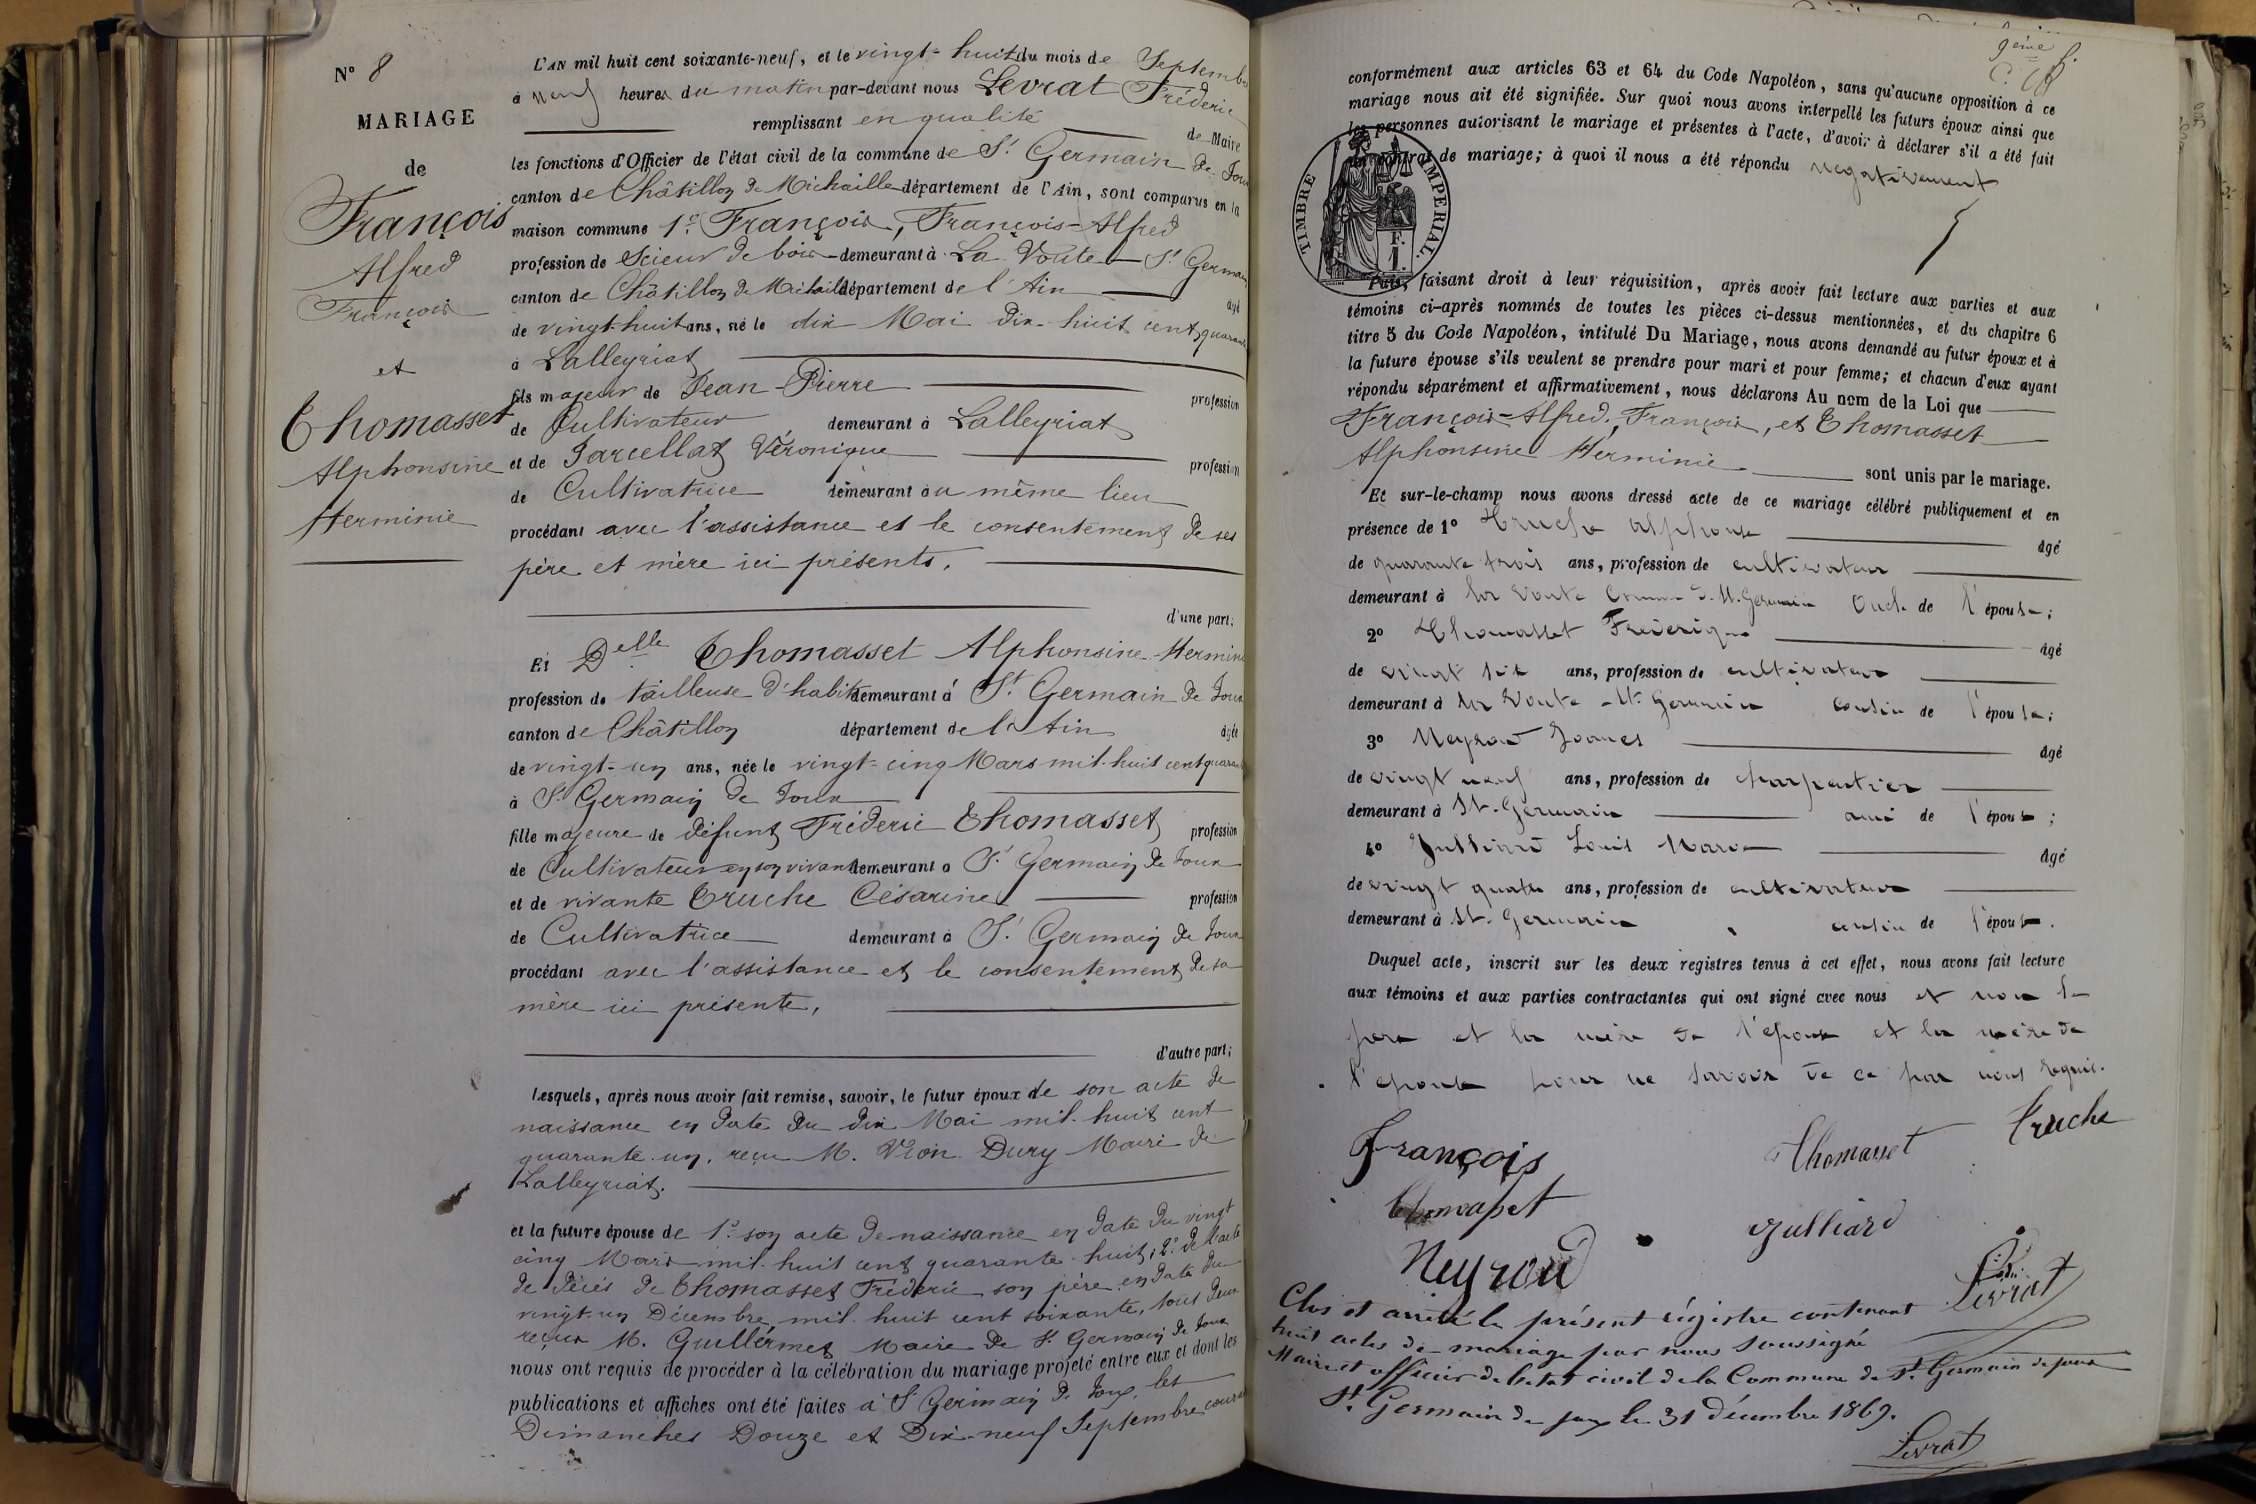 N° 8
MARIAGE
de
François
Alfred
François
et
Thomasset
Alphonsine
Herminie
L'AN mil huit cent soixante-neuf, et le vingt-huit du mois de Septembre
à neuf heures du matin par-devant nous Levrat Fréderic
remplissant en qualité de Maire
les fonctions d'Officier de l'état civil de la commune de St Germain de Joux
canton de Châtillon de Michaille département de l'Ain, sont comparus en la
maison commune 1° François, François-Alfred
profession de Scieur de bois demeurant à La Voute St Germain
canton de Châtillon de Michaille département de l'Ain âgé
de vingt-huit ans, né le dix Mai dix-huit cent quarante
à Lalleyriat
fils majeur de Jean-Pierre profession
de Cultivateur demeurant à Lalleyriat
et de Jarcellat Véronique profession
de Cultivatrice demeurant au même lieu
procédant avec l'assistance et le consentement de ses
père et mère ici présents.
d'une part;
Et Delle Thomasset Alphonsine-Herminie
profession de tailleuse d'habits demeurant à St Germain de Joux
canton de Châtillon département de l'Ain âgée
de vingt-un ans, née le vingt-cinq Mars mil-huit cent quarante
à St Germain de Joux
fille majeure de défunt Fréderic Thomasset profession
de Cultivateur en son vivant demeurant à St Germain de Joux
et de vivante Truche Césarine profession
de Cultivatrice demeurant à St Germain de Joux
procédant avec l'assistance et le consentement de sa
mère ici présente,
d'autre part;
Lesquels, après nous avoir fait remise, savoir, le futur époux de son acte de
naissance en date du dix Mai mil-huit cent
quarante-un, reçu M. Vion-Dury Maire de
Lalleyriat.
et la future épouse de 1° son acte de naissance en date du vingt
cinq Mars mil-huit cent quarante-huit; 2° de l'acte
de décès de Thomasset Fréderic son père en date du
vingt-un Décembre mil-huit cent soixante, tous deux
reçus M. Guillermet Maire de St Germain de Joux
nous ont requis de procéder à la célébration du mariage projeté entre eux et dont les
publications et affiches ont été faites à St Germain de Joux, les
Dimanches Douze et Dix-neuf Septembre courant
9ème f.
conformément aux articles 63 et 64 du Code Napoléon, sans qu'aucune opposition à ce
mariage nous ait été signifiée. Sur quoi nous avons interpellé les futurs époux ainsi que
les personnes autorisant le mariage et présentes à l'acte, d'avoir à déclarer s'il a été fait
un contrat de mariage; à quoi il nous a été répondu negativement
TIMBRE IMPERIAL.
Puis, faisant droit à leur réquisition, après avoir fait lecture aux parties et aux
témoins ci-après nommés de toutes les pièces ci-dessus mentionnées, et du chapitre 6
titre 5 du Code Napoléon, intitulé Du Mariage, nous avons demandé au futur époux et à
la future épouse s'ils veulent se prendre pour mari et pour femme; et chacun d'eux ayant
répondu séparément et affirmativement, nous déclarons Au nom de la Loi que
François-Alfred, François, et Thomasset
Alphonsine Herminie sont unis par le mariage.
Et sur-le-champ nous avons dressé acte de ce mariage célébré publiquement et en
présence de 1° Truche Alphonse âgé
de quarante trois ans, profession de cultivateur
demeurant à la Voute Commune d. St. Germain Oncle de l'épouse;
2° Thomasset Frederique âgé
de vingt six ans, profession de cultivateur
demeurant à la Voute - St. Germain cousin de l'épouse;
3° Neyroud Joanes âgé
de vingt neuf ans, profession de charpentier
demeurant à St-Germain ami de l'épouse;
4° Julliard Louis Marie âgé
de vingt quatre ans, profession de cultivateur
demeurant à St-Germain cousin de l'épouse.
Duquel acte, inscrit sur les deux registres tenus à cet effet, nous avons fait lecture
aux témoins et aux parties contractantes qui ont signé avec nous et non le
père et la mère de l'époux et la mère de
l'épouse pour ne savoir de ce par nous requis.
François Thomasset Truche
Thomasset Julliard
Neyroud Levrat
Clos et arrêté le présent régistre contenant
huit actes de mariage par nous soussigné
Maire et officier de l'etat civil de la Commune de St Germain de joux
St. Germain de joux le 31 décembre 1869.
Levrat